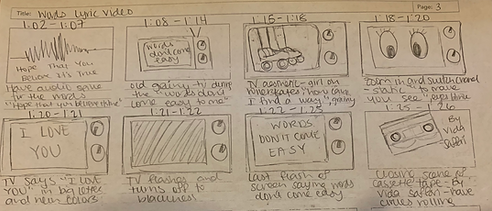 Title: Words Lyric Video
Page: 3
1:02-1:07
1:08-1:14
1:15-1:18
1:18-1:20
Hope That You
Believe It's True
Words
dont come
easy
Have audio spike
to the words
"Hope that you believe it's true"
Old grainy tv during
the "words don't
come easy to me"
TV segment - girl on
rollerskates "how can
I find a way" grainy
Zoom in and switch channel
- static "to make
you see" eyes blink
1:20-1:21
1:21-1:22
1:22-1:25
1:25-1:26
I LOVE
YOU
WORDS
DON'T COME
EASY
By
Vida
Safari
TV says "I love
You" in big letter
and neon colors
TV flashes and
turns off to
blackness
Last flash of
screen saying words
dont come easy
Closing scene of
cassette tape - By
Vida Safari - have
circles rolling